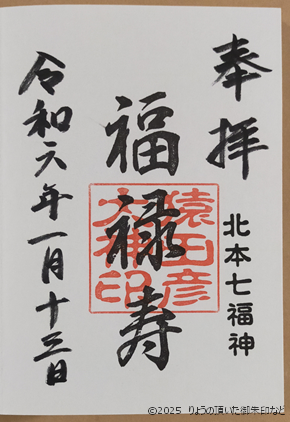 奉拝
北本七福神
福禄寿
猿田彦
大神印
令和六年一月十三日
©2025 りょうの頂いた御朱印など